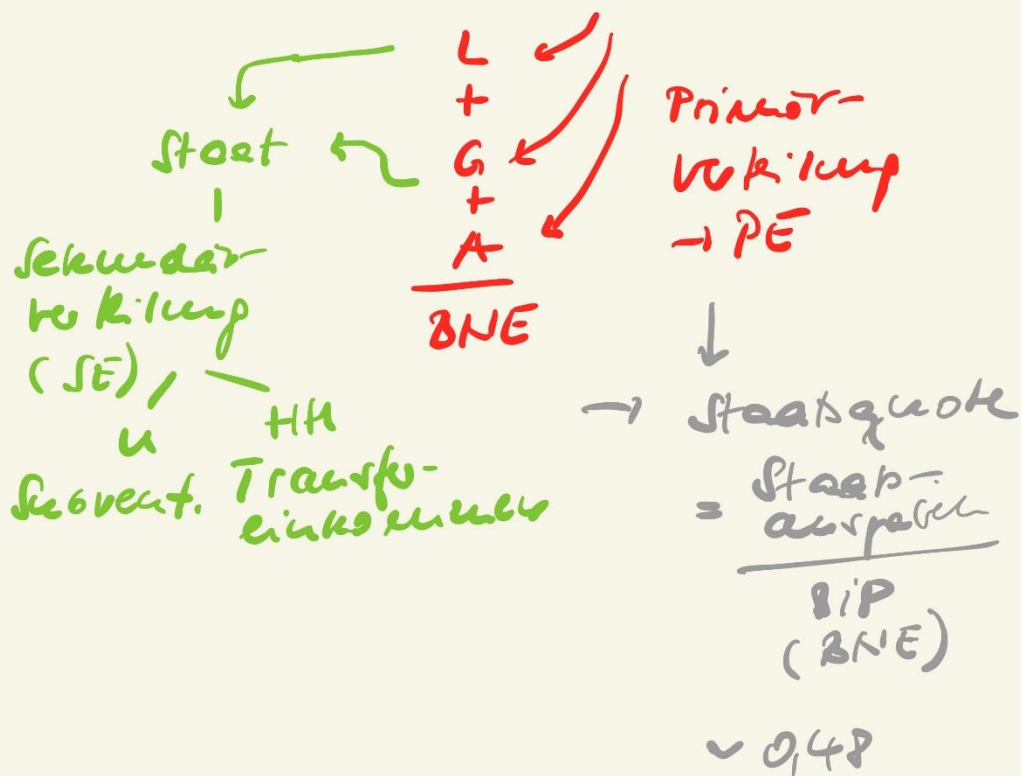 L
+
G
+
A
BNE
Primär-
verteilung
→ PE
Staat
Sekundär-
verteilung
(SE)
U
Subvent.
HH
Transfer-
einkommen
→ Staatsquote
= Staats-
ausgaben
BIP
(BNE)
~ 0,48